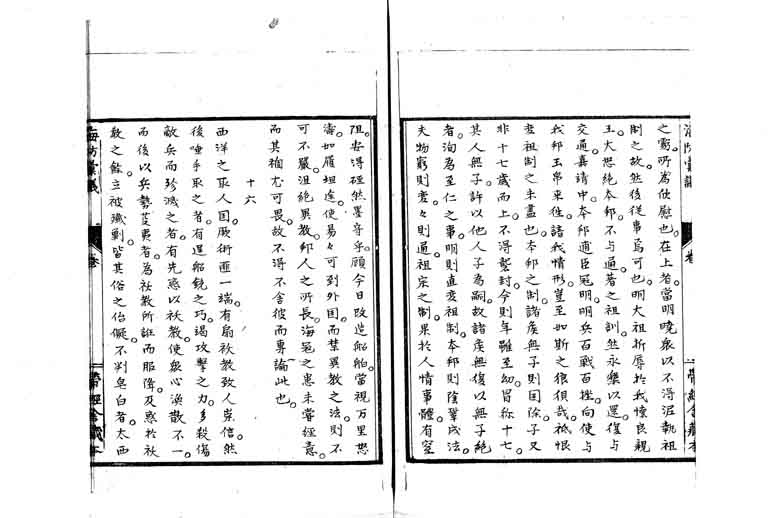 海防彙議
卷
帶經舍藏本
之需所為欣慰也在上者當明曉衆以不得泥執祖
制之故然後從事焉可也明大祖折辱於我懷良親
王大怒純本邦不与通著之祖訓然永樂以還復与
交通嘉請中本邦逋臣冠明明兵百戰百挫向使与
我邦玉帛来往諸我情形豈至如斯之狼狽哉祗恨
查祖制之未盡也本邦之制諸矦無子則国除子又
非十七歳而上不得襲封今則年雖至幼冒称十七
其人無子許以他人子為嗣故諸矦無復以無子絶
者洵為至仁之事明則直変祖制本邦則陰鞏成法
夫物窮則変々則通祖宗之制果於人情事體有窒
阻安得硜然墨守乎顧今日改造船舶當視万里怒
濤如履坦途使易々可到外国而禁異教之法則不
可不嚴洋絶異教邦人之所長海冦之患未嘗經意
而其禍尤可畏故不得不舍彼而專論此也
十六
西洋之取人国厥術匪一端有扇祆教致人崇信然
後唾手取之者有逞船銃之巧竭攻擊之力多殺傷
敵兵而殄滅之者有先惑以祆教使衆心渙散不一
而後以兵勢芟夷者為祆教所誑而服倚及惑於祆
教之餘立被殲剿皆其俗之伯儗不判皂白者太西
海防彙議
卷
帶經舍藏本